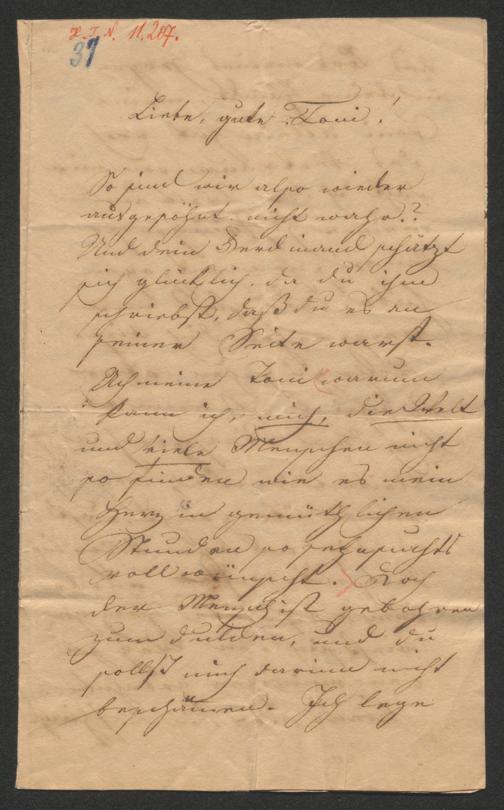 H. I. N. 11.207.
31
Liebe, gute Toni!
So sind wir also wieder
ausgesöhnt. nicht wahr.?
Und dein Ferdinand schätzt
sich glücklich. da du ihm
schriebst, daß du es an
seiner Seite warst.
Ach meine Toni (warum
kann ich, mich, die Welt
und viele Menschen nicht
so finden wie es mein
Herz in gemüthlichen
Stunden so sehnsuchts
voll wünscht.) Doch
der Mensch ist gebohren
zum dulden, und du
sollst mich darinn nicht
beschämen. Ich lege